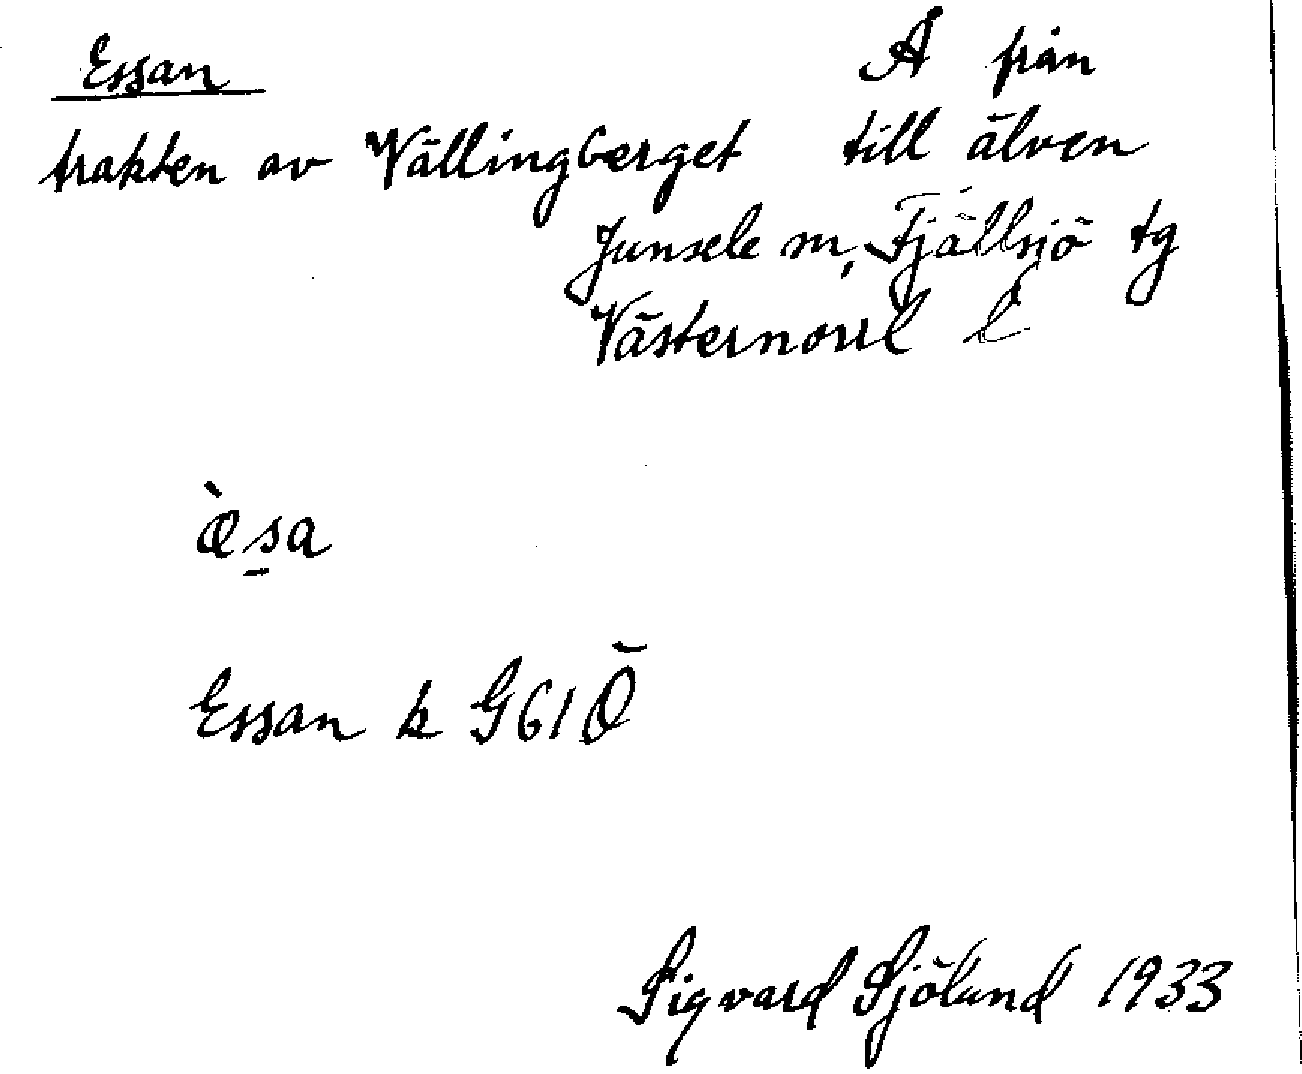 Essan Å från
trakten av Vällingberget till älven
Junsele sn, Fjällsjö tg
Västernorrl l
æ̀s̱a
Essan k G61Ö
Sigvard Sjölund 1933